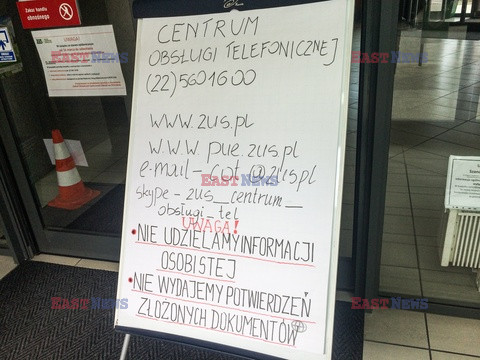 Zakaz handlu
obnośnego
UWAGA!
CENTRUM
OBSŁUGI TELEFONICZNEJ
(22) 5601600
www.zus.pl
www.pue.zus.pl
e-mail - cot@zus.pl
skype - zus_centrum_
obsługi_tel
UWAGA!
NIE UDZIELAMY INFORMACJI
OSOBISTEJ
NIE WYDAJEMY POTWIERDZEŃ
ZŁOŻONYCH DOKUMENTÓW
EASTNEWS
EASTNEWS
EASTNEWS
EASTNEWS
EASTNEWS